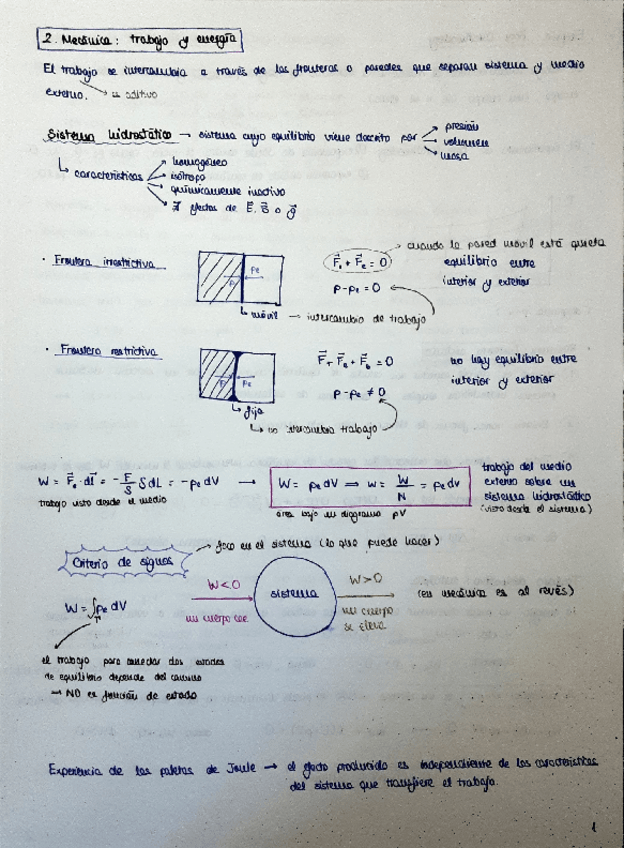 2. Mecánica: trabajo y energía
El trabajo se intercambia a través de las fronteras o paredes que separan sistema y medio
externo. → es aditivo
Sistema hidrostático → sistema cuyo equilibrio viene descrito por → presión
→ volumen
→ masa
↳ características → homogéneo
→ isótropo
→ químicamente inactivo
→ ∄ efectos de E⃗, B⃗ o g⃗
· Frontera irrestrictiva
P Pe
↳ móvil → intercambio de trabajo
F⃗i + F⃗e = 0
p - pe = 0
cuando la pared móvil está quieta
equilibrio entre
interior y exterior
· Frontera restrictiva
P Pe
↳ fija
↳ no intercambia trabajo
F⃗ + F⃗e + F⃗ = 0
p - pe ≠ 0
no hay equilibrio entre
interior y exterior
W = F⃗e · dl⃗ = - F/S S dL = - pe dV →
trabajo visto desde el medio
W = pe dV ⟹ w = W/N = pe dv
área bajo un diagrama pV
trabajo del medio
externo sobre un
sistema hidrostático
(visto desde el sistema)
Criterio de signos → foco en el sistema (lo que puede hacer)
W = ∫Γ pe dV
W < 0
un cuerpo cae
sistema
W > 0
un cuerpo
se eleva
(en mecánica es al revés)
el trabajo para conectar dos estados
de equilibrio depende del camino
→ NO es función de estado
Experiencia de las paletas de Joule → el efecto producido es independiente de las características
del sistema que transfiere el trabajo.
1